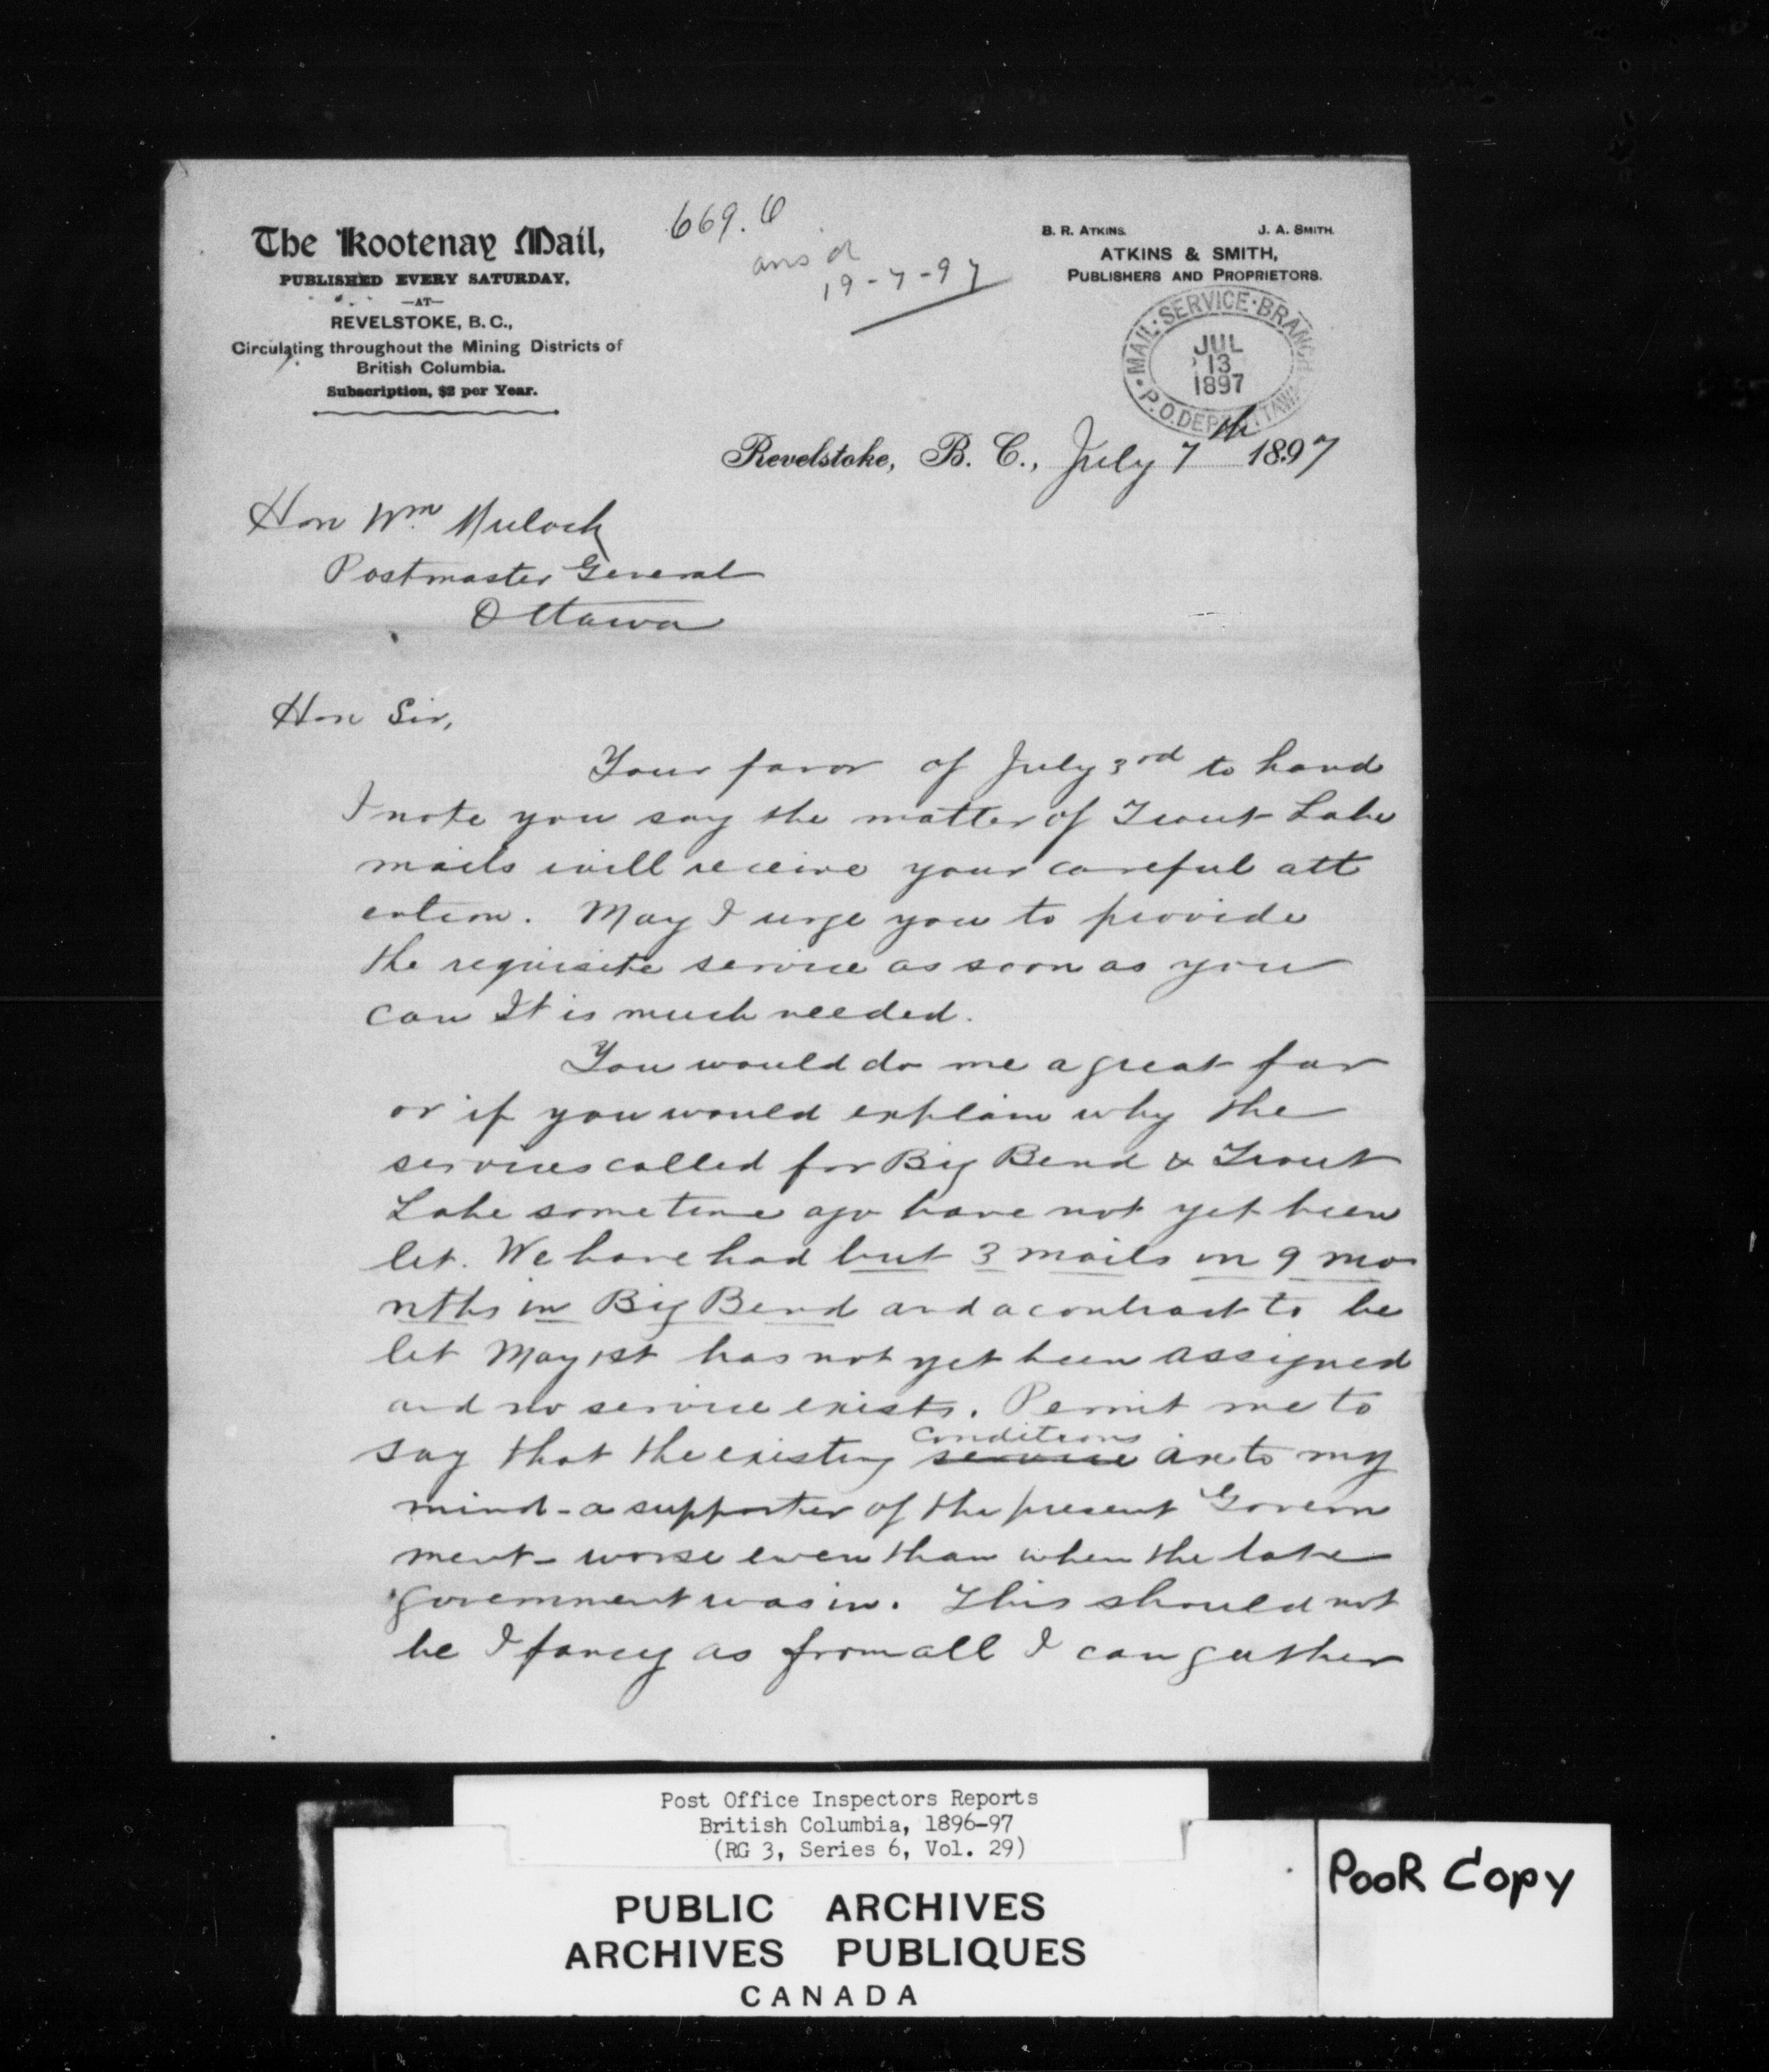 The Kootenay Mail,
PUBLISHED EVERY SATURDAY,
—AT—
REVELSTOKE, B.C.,
Circulating throughout the Mining Districts of
British Columbia.
Subscription, $2 per Year.
669.6
ans'd
19-7-97
B. R. ATKINS. J. A. SMITH.
ATKINS & SMITH,
PUBLISHERS AND PROPRIETORS.
MAIL·SERVICE·BRANCH
JUL
13
1897
P.O.DEPT OTTAWA
Revelstoke, B. C., July 7th 1897
Hon Wm Mulock
Postmaster General
Ottawa
Hon Sir,
Your favor of July 3rd to hand
I note you say the matter of Trout Lake
mails will receive your careful att
ention. May I urge you to provide
the requisite service as soon as you
can It is much needed.
You would do me a great fav
or if you would explain why the
services called for Big Bend & Trout
Lake some time ago have not yet been
let. We have had but 3 mails in 9 mo
nths in Big Bend and a contract to be
let May 1st has not yet been assigned
and no service exists. Permit me to
say that the existing service conditions are to my
mind - a supporter of the present Govern
ment - worse even than when the late
government was in. This should not
be I fancy as from all I can gather
Post Office Inspectors Reports
British Columbia, 1896-97
(RG 3, Series 6, Vol. 29)
PUBLIC ARCHIVES
ARCHIVES PUBLIQUES
CANADA
POOR COPY